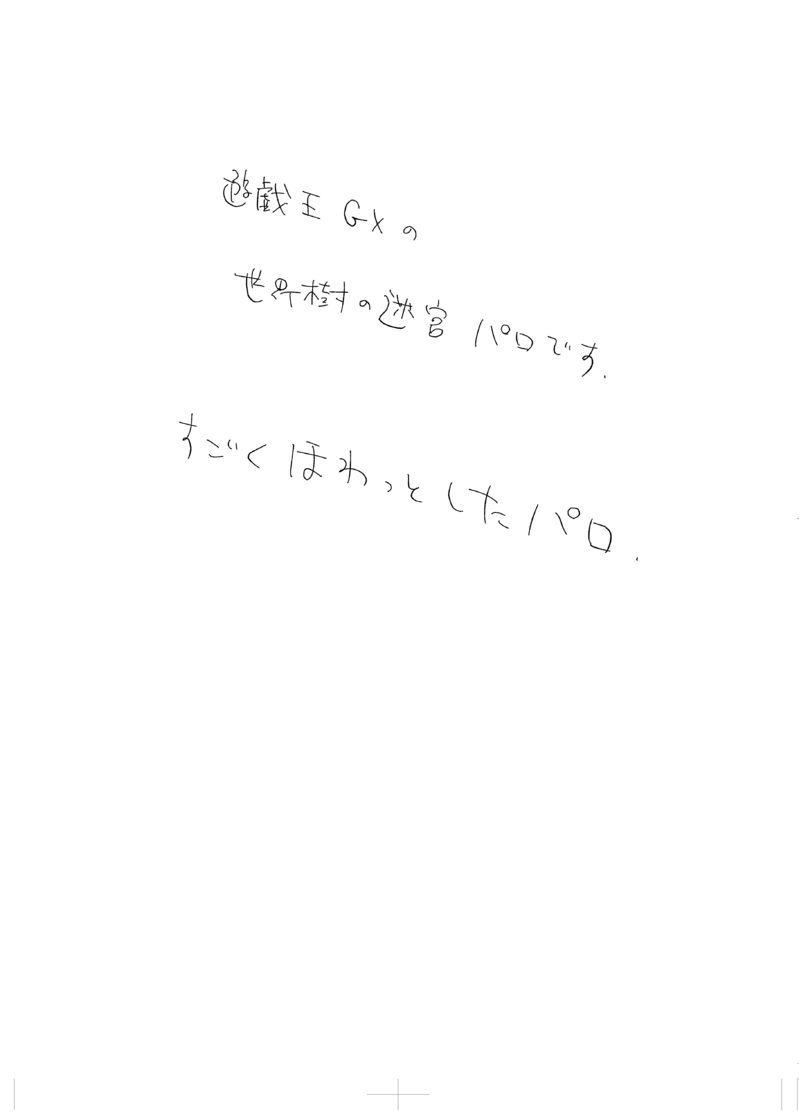 遊戯王GXの
世界樹の迷宮パロです.
すごくほわっとしたパロ.